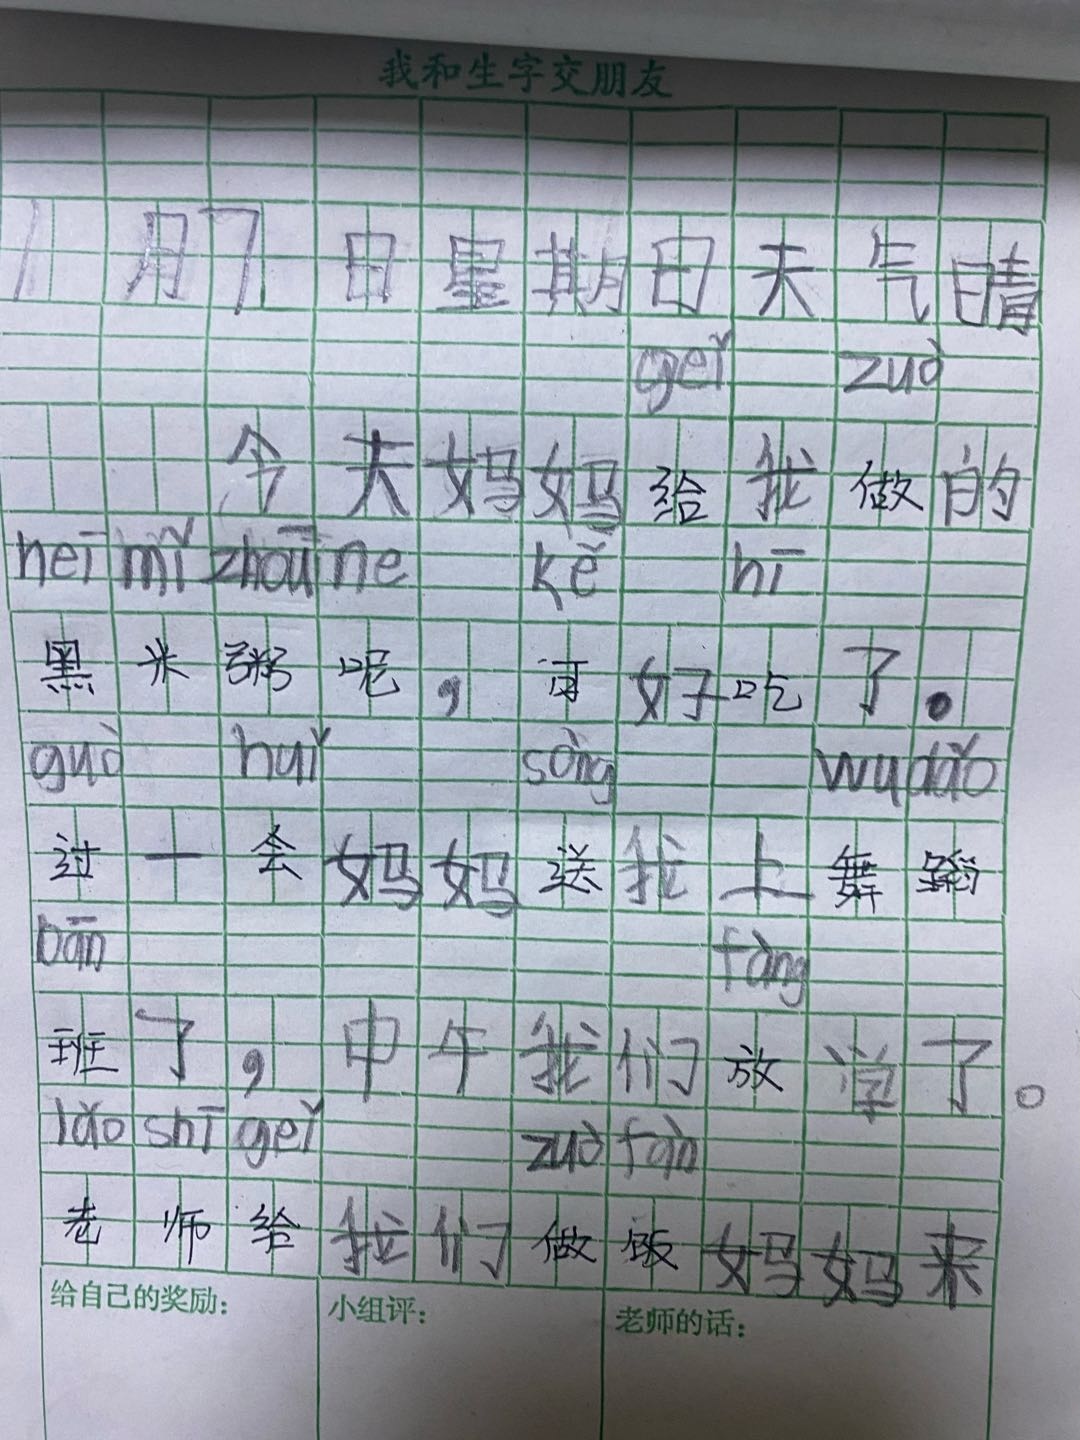 我和生字交朋友
1月7日星期日天气晴
gěi zuò
今天妈妈给我做的
hēi mǐ zhōu ne kě hī
黑米粥呢，可好吃了。
guò huǐ sòng wu dǎo
过一会妈妈送我上舞蹈
bān fàng
班了，中午我们放学了。
lǎo shī gěi zuò fàn
老师给我们做饭妈妈来
给自己的奖励： 小组评： 老师的话：